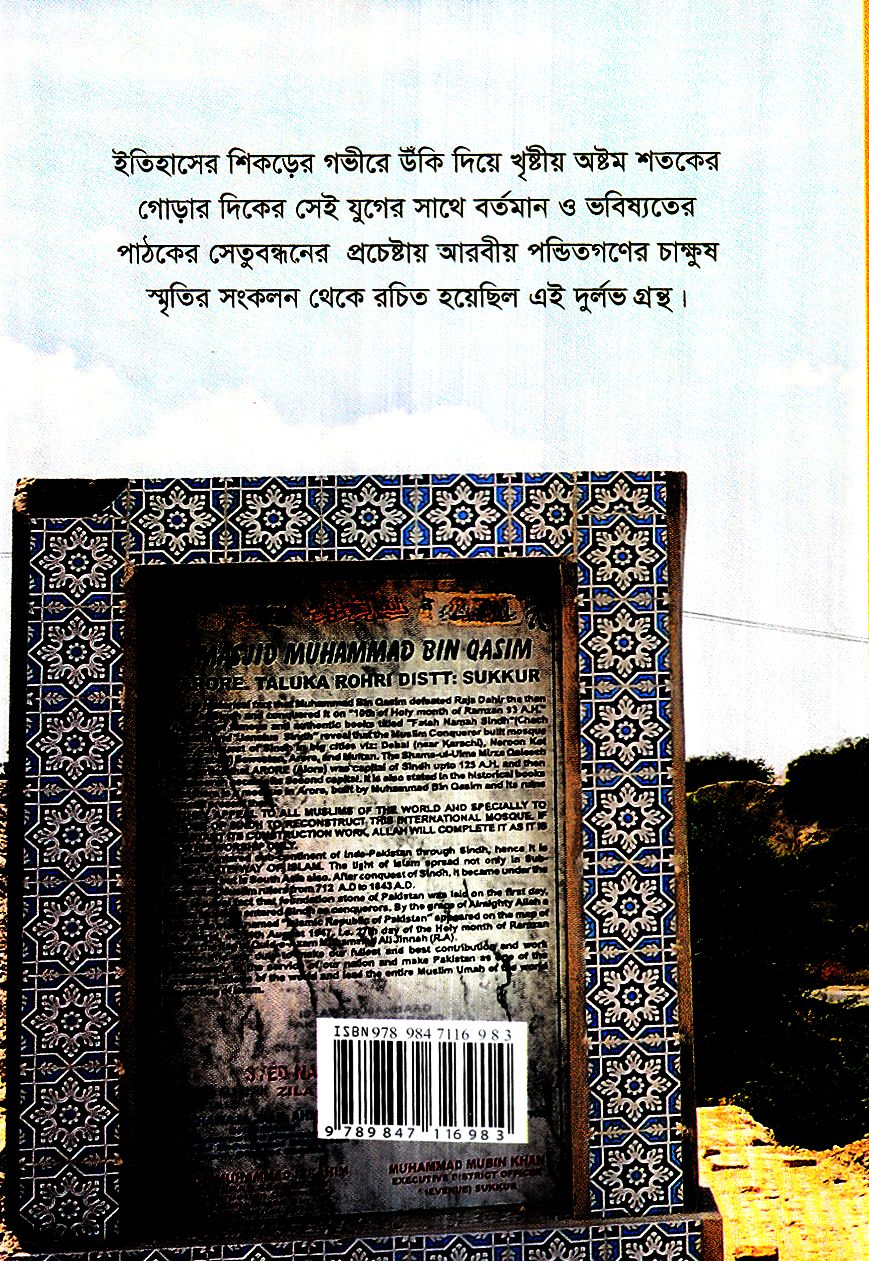 ইতিহাসের শিকড়ের গভীরে উঁকি দিয়ে খৃষ্টীয় অষ্টম শতকের
গোড়ার দিকের সেই যুগের সাথে বর্তমান ও ভবিষ্যতের
পাঠকের সেতুবন্ধনের প্রচেষ্টায় আরবীয় পন্ডিতগণের চাক্ষুষ
স্মৃতির সংকলন থেকে রচিত হয়েছিল এই দুর্লভ গ্রন্থ।
MASJID MUHAMMAD BIN QASIM
TALUKA ROHRI DISTT: SUKKUR
that Muhammad Bin Qasim defeated Raja Dahir the then
and conquered it on "10th of Holy month of Ramzan 93 A.H."
and authentic books titled "Fateh Namah Sindh"(Chach
Sindh" reveal that the Muslim Conqueror built mosque
of Sindh in big cities viz: Debal (near Karachi), Neroon Kot
Arore, and Multan. The Shams-ul-Ulma Mirza Qaleech
ARORE (Alore) was capital of Sindh upto 125 A.H. and then
capital. It is also stated in the historical books
in Arore, built by Muhammad Bin Qasim and its ruins
TO ALL MUSLIMS OF THE WORLD AND SPECIALLY TO
TO RECONSTRUCT THIS INTERNATIONAL MOSQUE. IF
CONSTRUCTION WORK, ALLAH WILL COMPLETE IT AS IT IS
ONLY.
continent of Indo-Pakistan through Sindh, hence it is
OF ISLAM. The light of Islam spread not only in Sub-
in South Asia also. After conquest of Sindh, it became under the
from 712 A.D to 1843 A.D.
that foundation stone of Pakistan was laid on the first day,
entered Sindh as conquerors. By the grace of Almighty Allah a
of "Islamic Republic of Pakistan" appeared on the map of
1947, i.e. 27th day of the Holy month of Ramzan
Muhammad Ali Jinnah (R.A).
to make our fullest and best contribution and work
service of our nation and make Pakistan as one of the
of the world and lead the entire Muslim Umah of the world
ISBN 978 984 7116 98 3
9 789847 116983
MUHAMMAD MUBIN KHAN
EXECUTIVE DISTRICT OFFICER
(REVENUE) SUKKUR